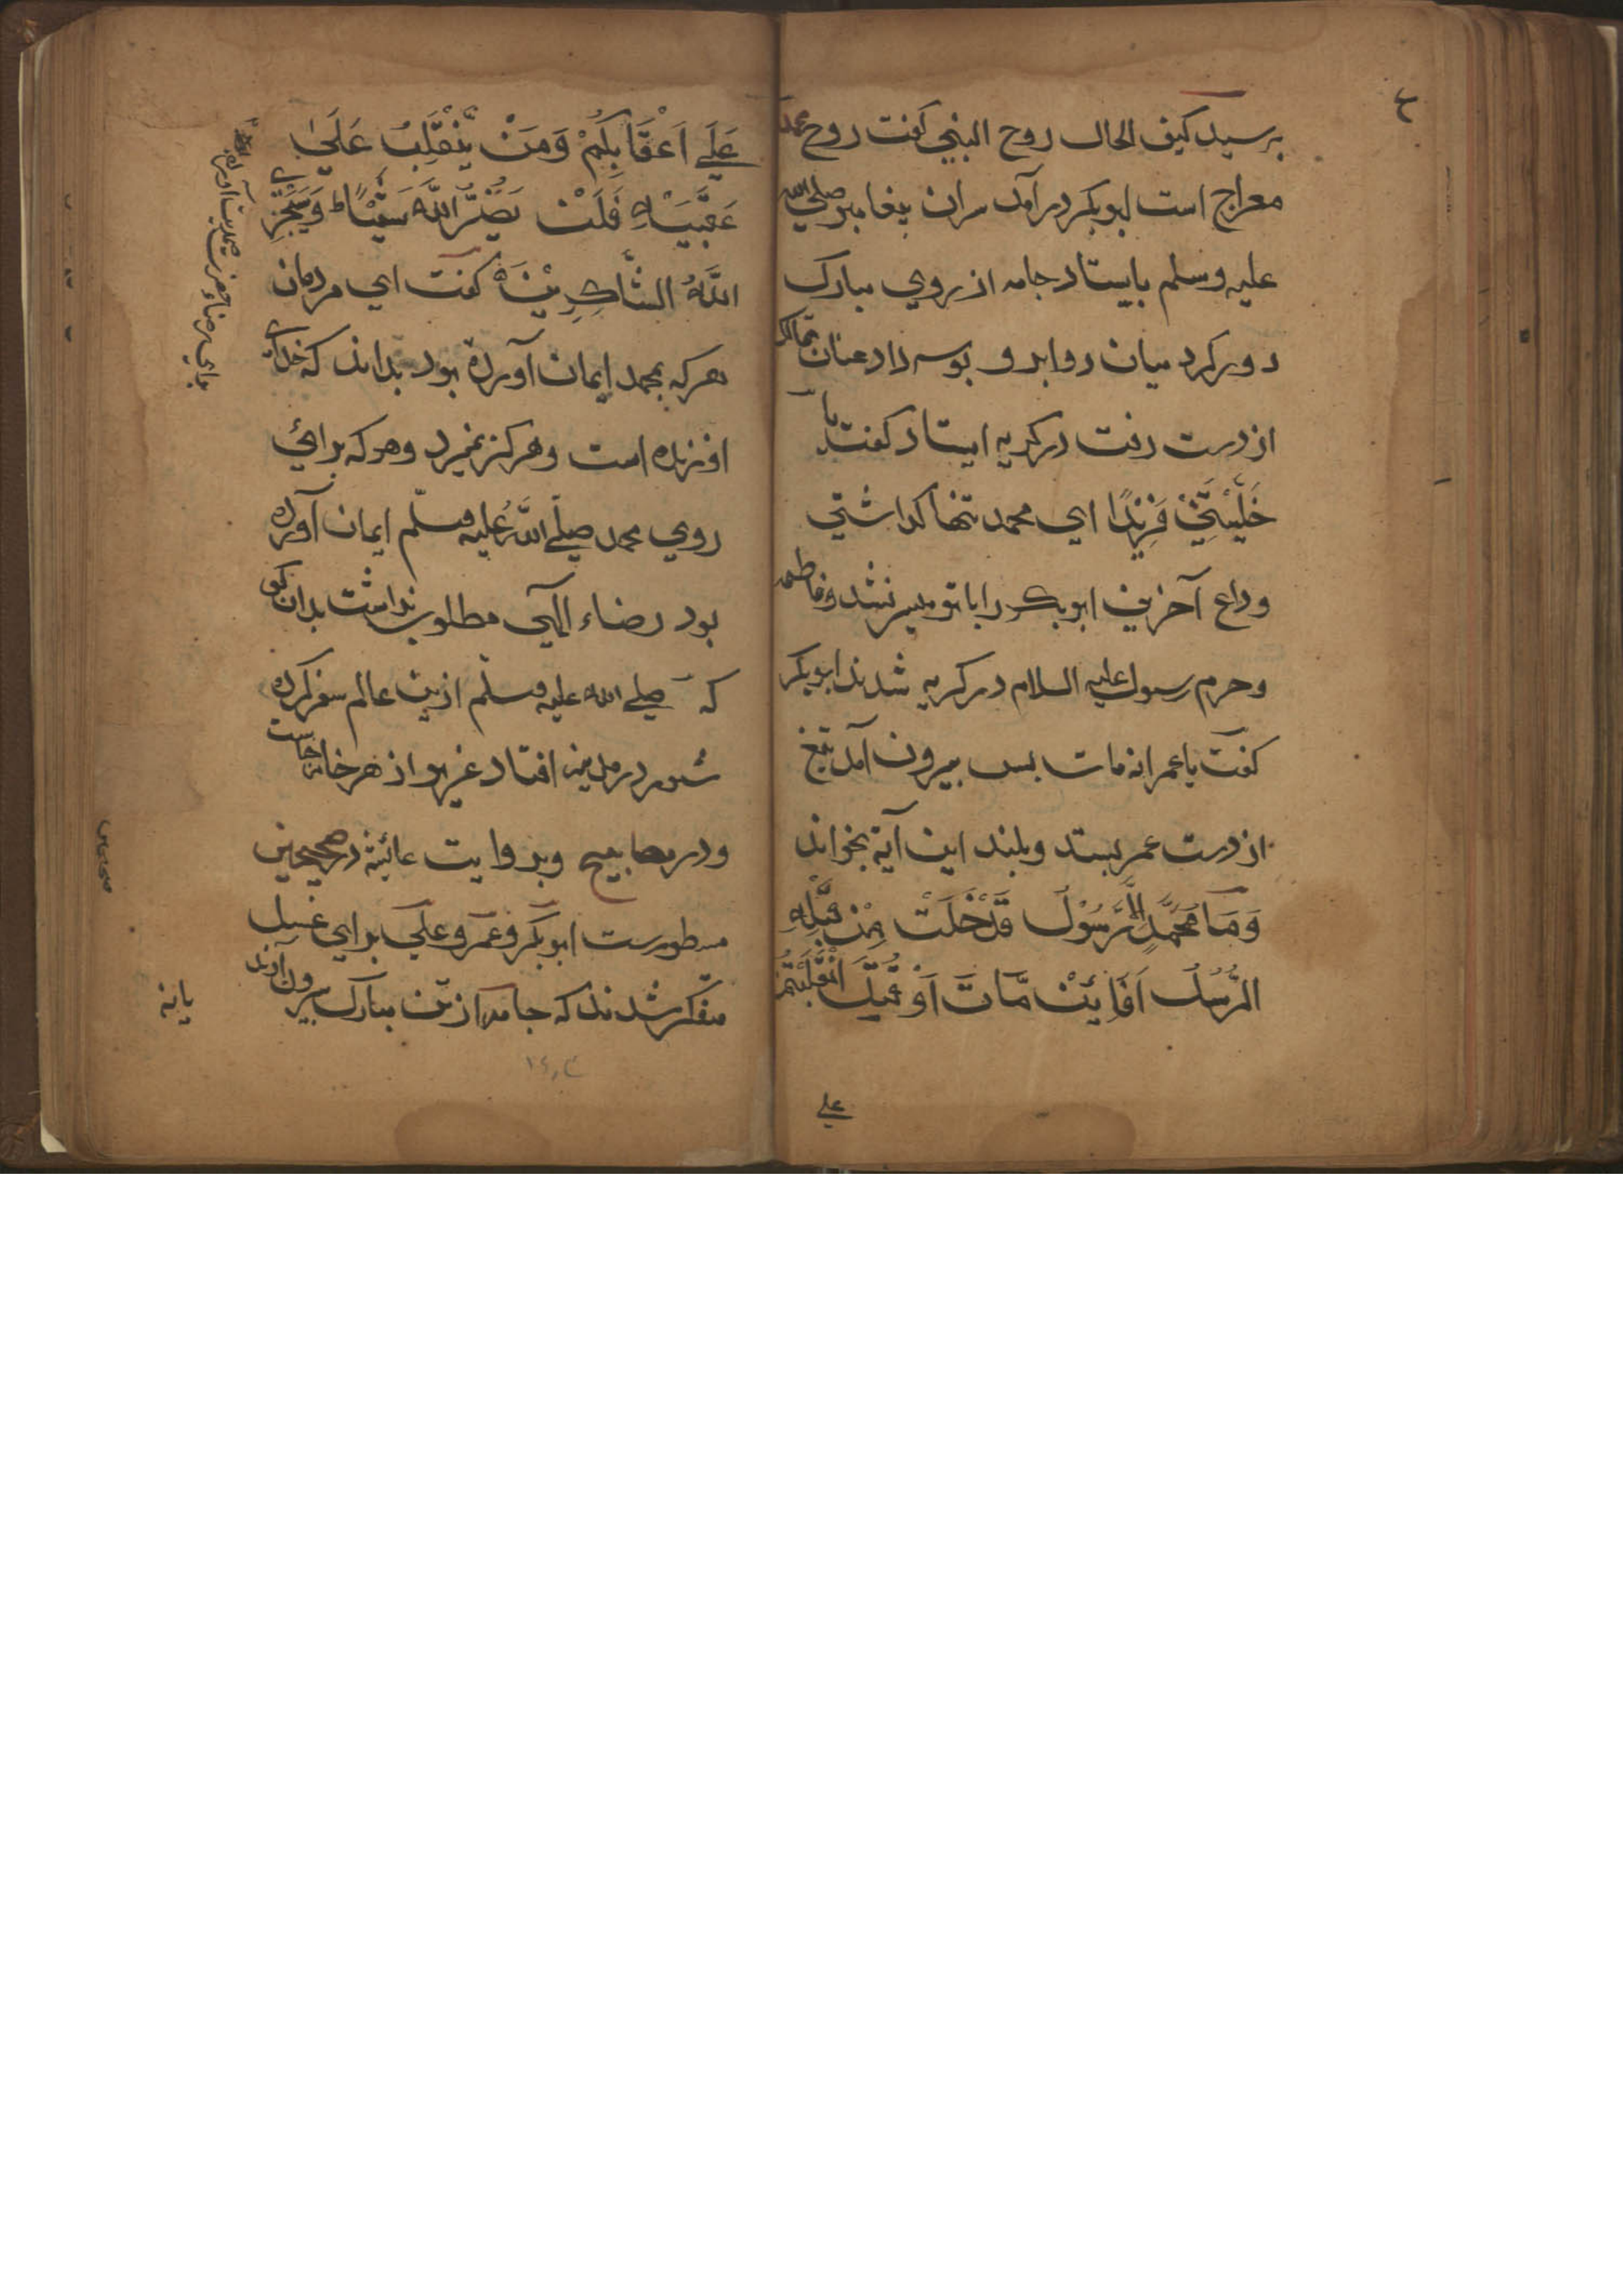 ٤
برسید کیف الحال روح النبی گفت روح محمد
معراج است ابوبکر درآمد سران پیغامبر صلی الله
علیه وسلم بایستاد جامه از روی مبارک
دور کرد میان دو ابرو بوسه داد عنان تمالک
از دست رفت در گریه ایستاد گفت یا
خَلَّیْتَنِیْ فَرِیْدًا ای محمد تنها گذاشتی
وداع آخرین ابوبکر را با تو میسر نشد و فاطمه
و حرم رسول علیه السلام در گریه شدند ابوبکر
گفت یا عمر انه مات بس بیرون آمد تیغ
از دست عمر بستد و بلند این آیة بخواند
وَمَا مُحَمَّدٌ اِلَّا رَسُوْلٌ قَدْ خَلَتْ مِنْ قَبْلِهِ
الرُّسُلُ اَفَائِنْ مَّاتَ اَوْ قُتِلَ انْقَلَبْتُمْ
علی
عَلٰی اَعْقَابِكُمْ وَمَنْ یَّنْقَلِبْ عَلٰی
عَقِبَیْهِ فَلَنْ یَضُرَّ اللّٰهَ شَیْئًا ط وَسَیَجْزِی
اللّٰهُ الشَّاكِرِیْنَ گفت ای مردمان
هر که بمحمد ایمان آورده بود بداند که خدای
او زنده است و هرگز نمیرد و هر که برائی
روی محمد صلی الله علیه وسلم ایمان آورده
بود رضاء الهی مطلوب نداشت بدان گو
که صلی الله علیه وسلم ازین عالم سفر کرده
شور در مدینه افتاد غریو از هر خانه خاست
و در مصابیح و بروایت عائشة در صحیحین
مسطورست ابوبکر و عمر و علی برای غسل
متفکر شدند که جامه از تن مبارک بیرون آرند
یا نه
١٤٠٣